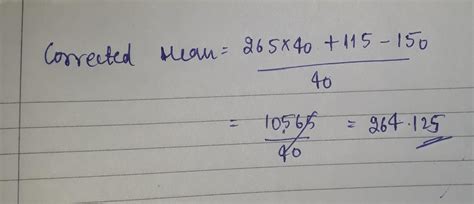 Corrected Mean = 265×40 +115 - 150
40
= 10565 = 264.125
40